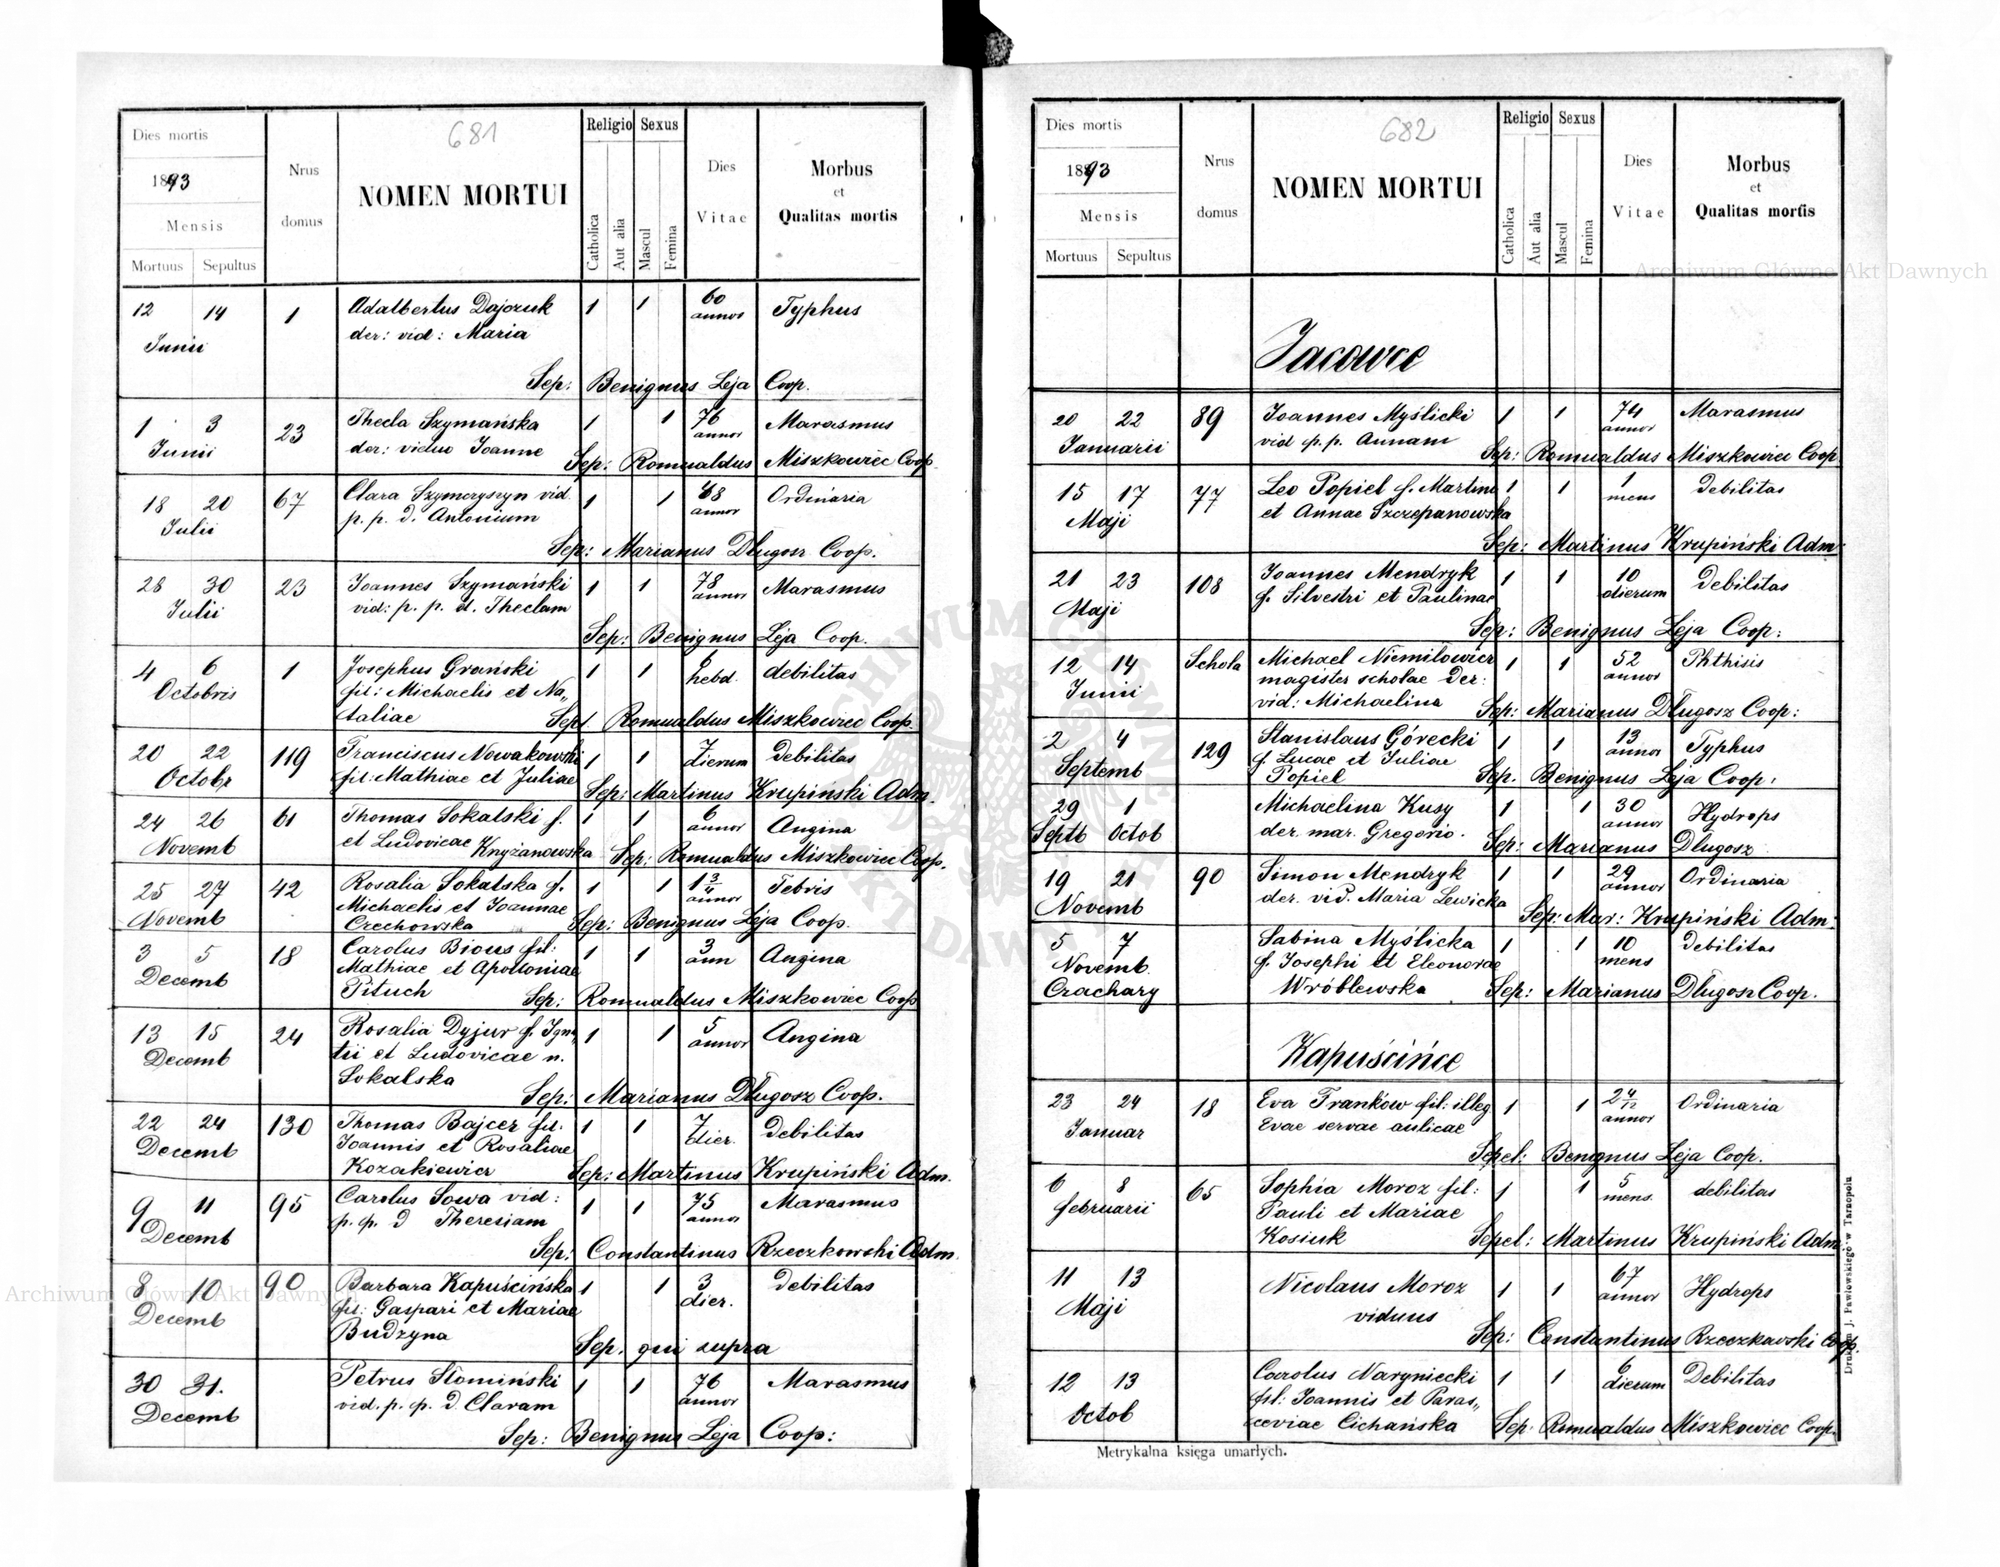 681
Dies mortis
1893
Mensis
Mortuus Sepultus
Nrus
domus
NOMEN MORTUI
Religio Sexus
Catholica
Aut alia
Mascul
Femina
Dies
Vitae
Morbus
et
Qualitas mortis
12 14 1 Adalbertus Dajczuk 1 1 60 Typhus
Junii der: vid: Maria annor
Sep: Benignus Leja Coop.
1 3 23 Thecla Szymańska 1 1 76 Marasmus
Junii der: viduo Joanne annor
Sep: Romualdus Miszkowiec Coop.
18 20 67 Clara Szymczyszyn vid. 1 1 68 Ordinaria
Julii p. p. d. Antonium annor
Sep: Marianus Długosz Coop.
28 30 23 Joannes Szymański 1 1 78 Marasmus
Julii vid: p. p. d. Theclam annor
Sep: Benignus Leja Coop.
4 6 1 Josephus Grański 1 1 hebd. debilitas
Octobris fil: Michaelis et Na„
taliae Sep. Romualdus Miszkowiec Coop.
20 22 119 Franciscus Nowakowski 1 1 7 Debilitas
Octobr fil: Mathiae et Juliae dierum
Sep: Martinus Krupiński Adm.
24 26 61 Thomas Sokalski f. 1 1 6 Angina
Novemb et Ludovicae Knyżanowska annor
Sep: Romualdus Miszkowiec Coop.
25 27 42 Rosalia Sokalska f. 1 1 1 3/4 Febris
Novemb Michaelis et Joannae annor
Czechowska Sep: Benignus Leja Coop.
3 5 18 Carolus Bious fil: 1 1 3 Angina
Decemb Mathiae et Apolloniae ann
Pituch Sep: Romualdus Miszkowiec Coop
13 15 24 Rosalia Dyjur f. Igna„ 1 1 5 Angina
Decemb tii et Ludovicae n. annor
Sokalska
Sep: Marianus Długosz Coop.
22 24 130 Thomas Bajcer fil. 1 1 7 Debilitas
Decemb Joannis et Rosaliae dier.
Kozakiewicz Sep: Martinus Krupiński Adm.
9 11 95 Carolus Sowa vid: 1 1 75 Marasmus
Decemb p. p. d Theresiam annor
Sep: Constantinus Rzeczkowski Adm.
8 10 90 Barbara Kapuścińska 1 1 3 Debilitas
Decemb fil: Gaspari et Mariae dier.
Budzyna Sep. qui supra
30 31. Petrus Słomiński 1 1 76 Marasmus
Decemb vid. p. p. d Claram annor
Sep: Benignus Leja Coop:
682
Dies mortis
1893
Mensis
Mortuus Sepultus
Nrus
domus
NOMEN MORTUI
Religio Sexus
Catholica
Aut alia
Mascul
Femina
Dies
Vitae
Morbus
et
Qualitas mortis
Jacowce
20 22 89 Joannes Myślicki 1 1 74 Marasmus
Januarii vid p. p. Annam annor
Sep: Romualdus Miszkowiec Coop.
15 17 77 Leo Popiel f. Martini 1 1 1 Debilitas
Maji et Annae Szczepanowska mens
Sep: Martinus Krupiński Adm:
21 23 108 Joannes Mendryk 1 1 10 Debilitas
Maji f. Silvestri et Paulinae dierum
Sep: Benignus Leja Coop:
12 14 Schola Michael Niemilowicz 1 1 52 Phthisis
Junii magister scholae der: annor
vid: Michaelina Sep: Marianus Długosz Coop:
2 4 129 Stanislaus Górecki 1 1 13 Typhus
Septemb f. Lucae et Juliae annor
Popiel Sep. Benignus Leja Coop:
29 1 Michaelina Kusy 1 1 30 Hydrops
Septb Octob der. mar. Gregorio. annor
Sep: Marianus Długosz
19 21 90 Simon Mendryk 1 1 29 Ordinaria
Novemb der. vid. Maria Lewicka annor
Sep: Mar: Krupiński Adm:
5 7 Sabina Myślicka 1 1 10 Debilitas
Novemb. f. Josephi et Eleonorae mens
Czachary Wróblewska Sep: Marianus Długosz Coop.
Kapuścińce
23 24 18 Eva Franków fil: illeg 1 1 2 4/12 Ordinaria
Januar Evae servae aulicae annor
Sepel: Benignus Leja Coop.
6 8 65 Sophia Moroz fil: 1 1 5 debilitas
februarii Pauli et Mariae mens.
Kosiuk Sepel: Martinus Krupiński Adm
11 13 Nicolaus Moroz 1 1 67 Hydrops
Maji viduus annor
Sep: Constantinus Rzeczkowski Coop.
12 13 Carolus Naryniecki 1 1 6 Debilitas
Octob fil: Joannis et Paras„ dierum
ceviae Cichańska Sep. Romualdus Miszkowiec Coop.
Metrykalna księga umarłych.
Drukiem J. Pawłowskiego w Tarnopolu
Archiwum Główne Akt Dawnych
Archiwum Główne Akt Dawnych
ARCHIWUM GŁÓWNE AKT DAWNYCH